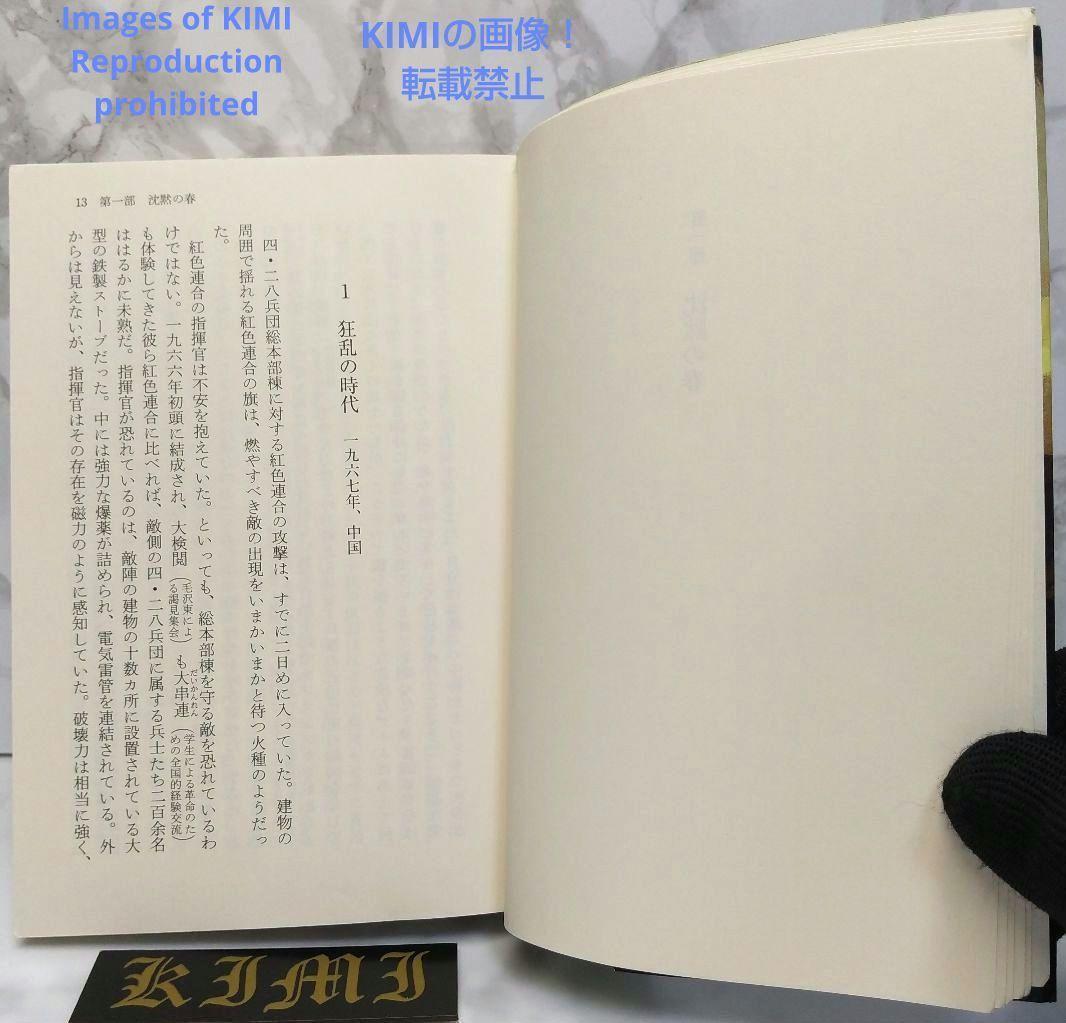 Images of KIMI
Reproduction
prohibited
KIMIの画像！
転載禁止
13 第一部 沈黙の春
1 狂乱の時代 一九六七年、中国
四・二八兵団総本部棟に対する紅色連合の攻撃は、すでに二日めに入っていた。建物の
周囲で揺れる紅色連合の旗は、燃やすべき敵の出現をいまかいまかと待つ火種のようだっ
た。
紅色連合の指揮官は不安を抱えていた。といっても、総本部棟を守る敵を恐れているわ
けではない。一九六六年初頭に結成され、大検閲（毛沢東による謁見集会）も大串連（学生による革命のための全国的経験交流）
だいかんれん
も体験してきた彼ら紅色連合に比べれば、敵側の四・二八兵団に属する兵士たち二百余名
ははるかに未熟だ。指揮官が恐れているのは、敵陣の建物の十数ヵ所に設置されている大
型の鉄製ストーブだった。中には強力な爆薬が詰められ、電気雷管を連結されている。外
からは見えないが、指揮官はその存在を磁力のように感知していた。破壊力は相当に強く、
KIMI